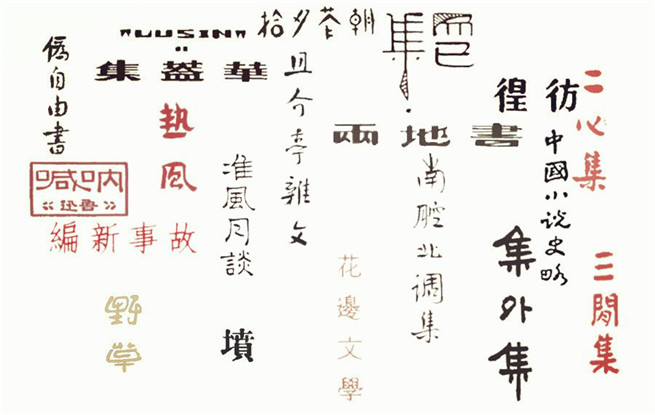 二心集
三閒集
彷徨
中國小说史略
集外集
而已集
兩地書
南腔北调集
朝花夕拾
花邊文學
且介亭雜文
"LUSIN"
華蓋集
准風月談
墳
熱風
故事新編
野草
僞自由書
吶喊
《魯迅》